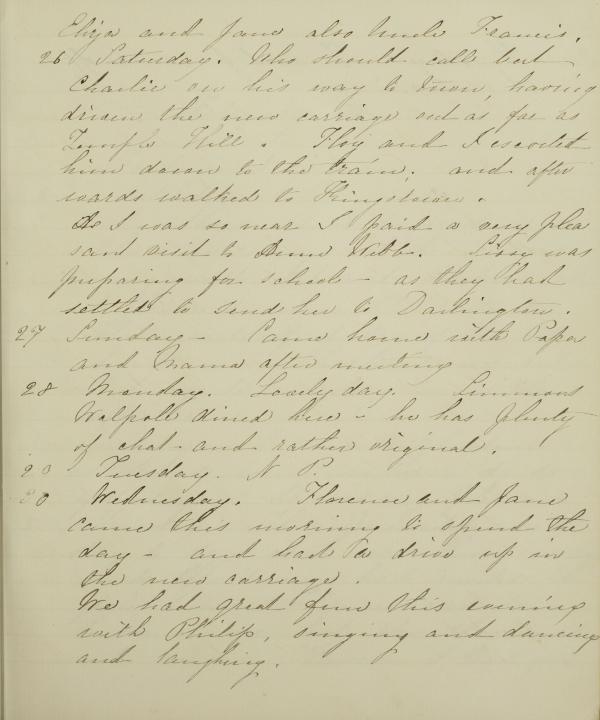 Eliza and Jane also Uncle Francis.
26 Saturday. Who should call but
Charlie on his way to town, having
driven the new carriage out as far as
Temple Hill. Floy and I escorted
him down to the train, and after
wards walked to Kingstown.
As I was so near I paid a very plea
sant visit to Anne Webb. Lissy was
preparing for school - as they had
settled to send her to Darlington.
27 Sunday - Came home with Papa
and Mama after meeting
28 Monday. Lovely day. Simmons
Walpole dined here - he has plenty
of chat and rather original.
29 Tuesday. N P.
30 Wednesday. Florence and Jane
came this morning to spend the
day - and had a drive up in
the new carriage.
We had great fun this evening
with Philip, singing and dancing
and laughing.